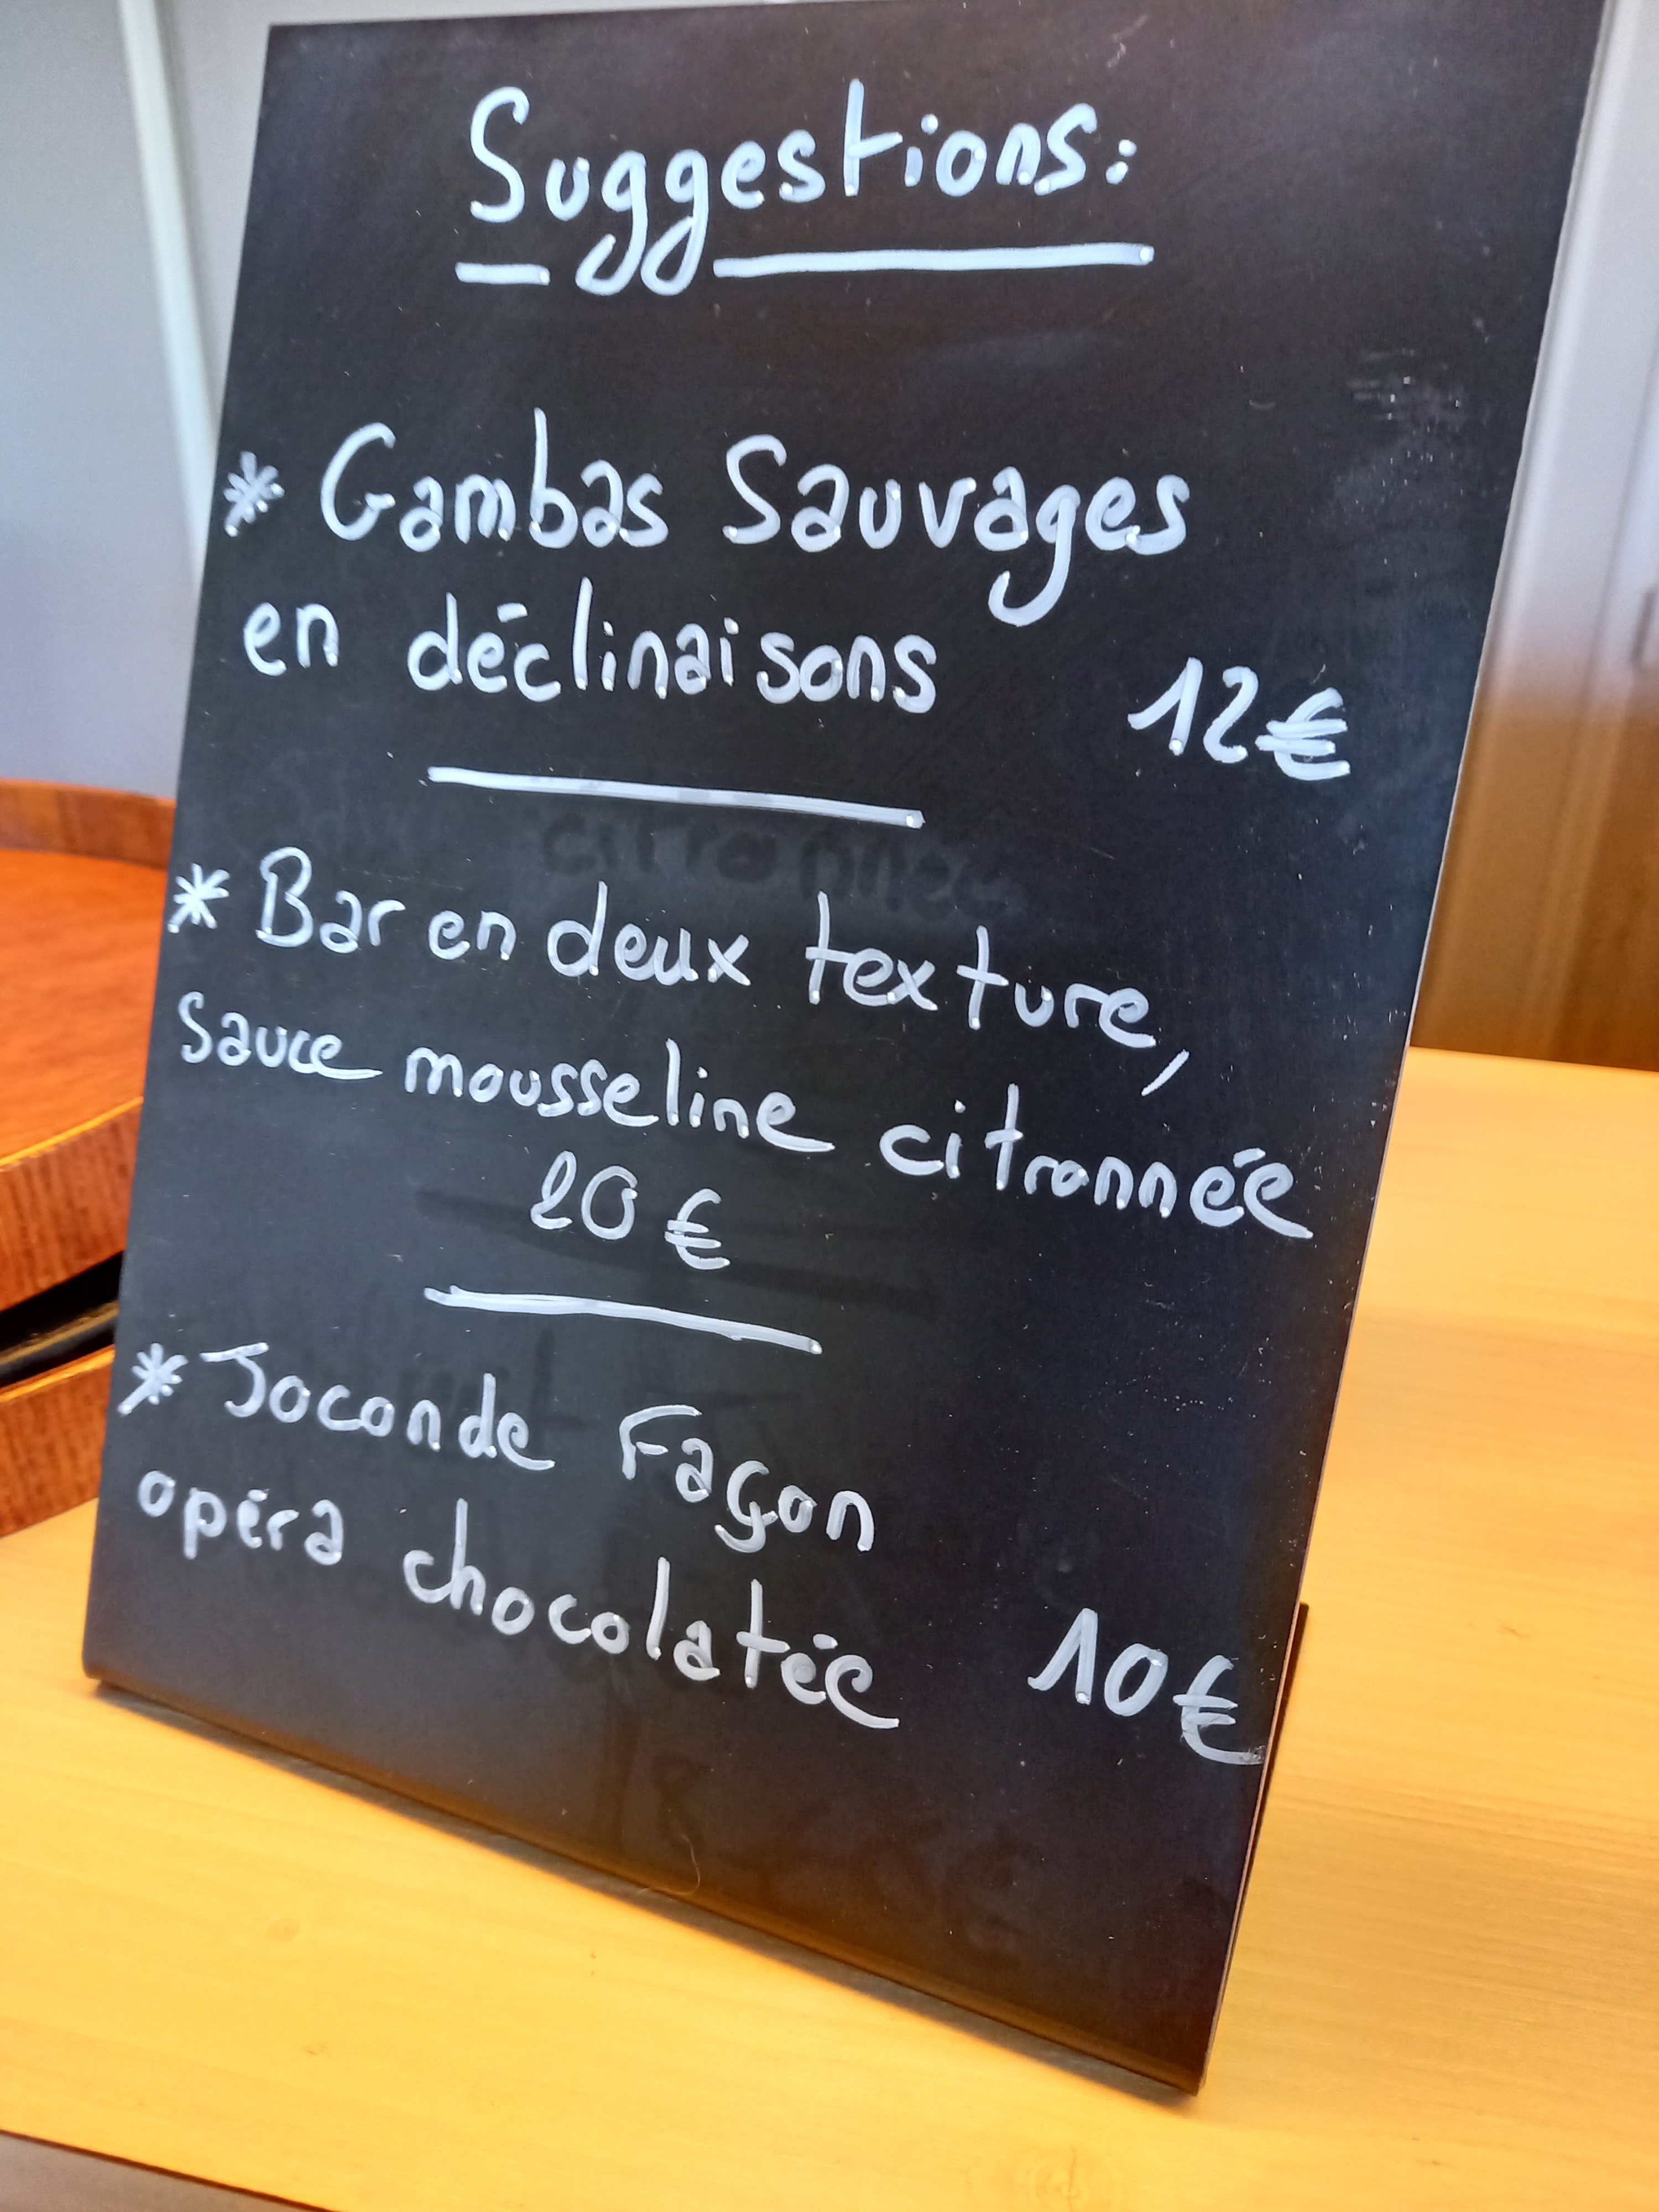 Suggestions:
* Gambas Sauvages
en déclinaisons 12€
* Bar en deux texture,
Sauce mousseline citronnée
20 €
* Joconde Façon
opéra chocolatée 10€